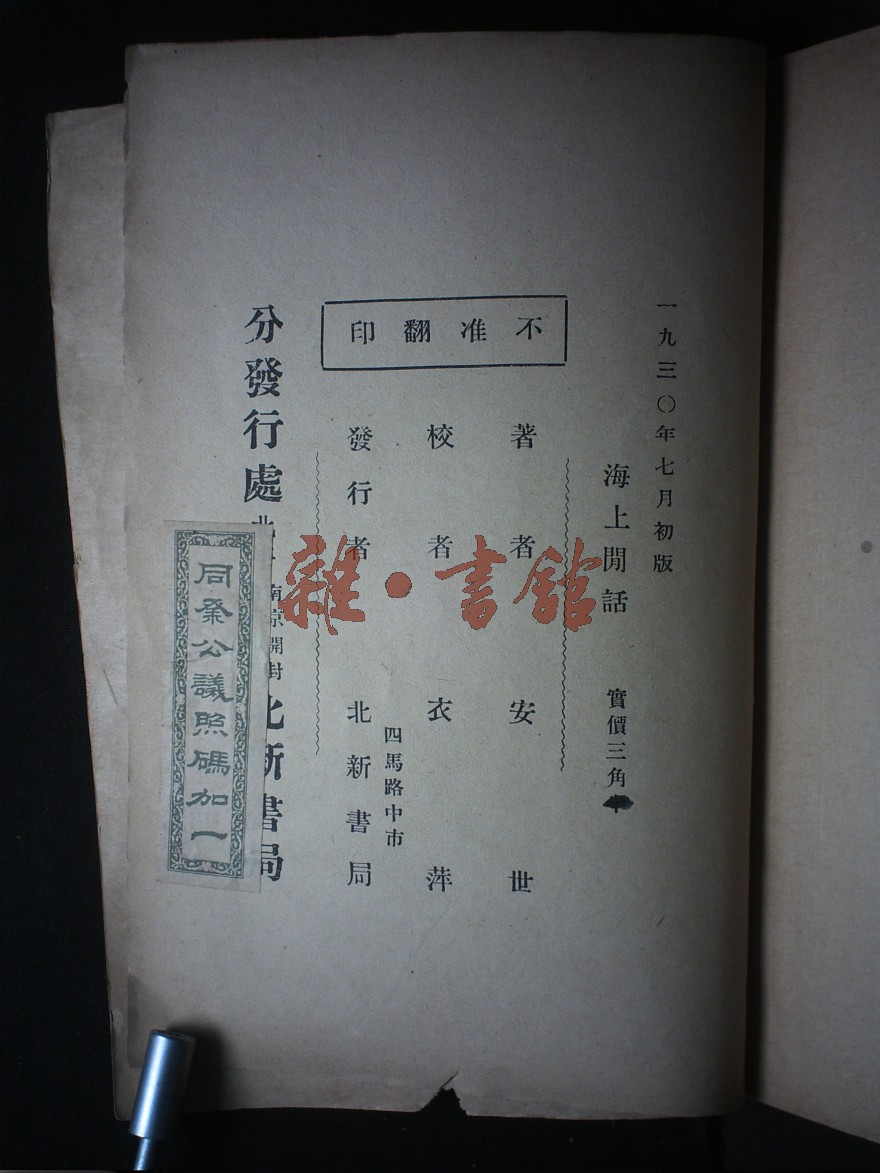 一九三〇年七月初版
海上閒話 實價三角
不准翻印
著者 安世
校者 衣萍
四馬路中市
發行者 北新書局
分發行處 南京 開封 北新書局
同業公議照碼加一
雜·書館